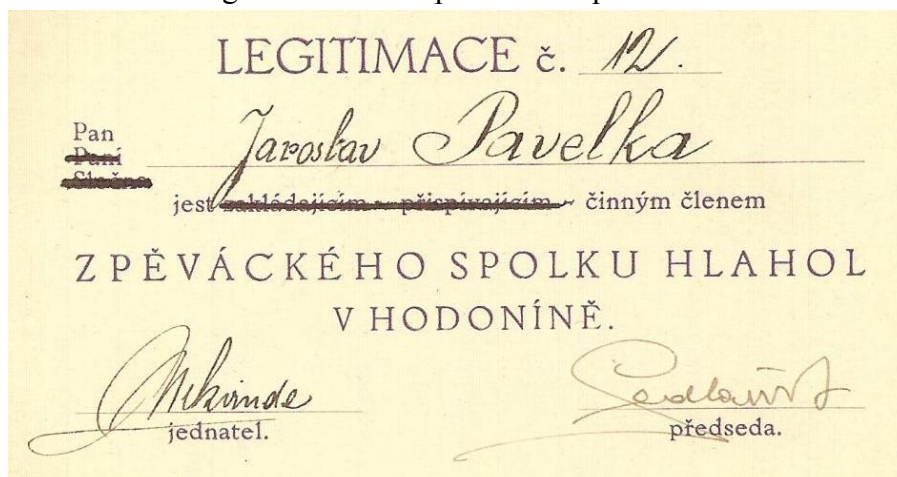 LEGITIMACE č. 12.
Pan
Paní
Slečna
Jaroslav Pavelka
jest zakládajícím ~ přispívajícím ~ činným členem
ZPĚVÁCKÉHO SPOLKU HLAHOL
V HODONÍNĚ.
jednatel.
předseda.